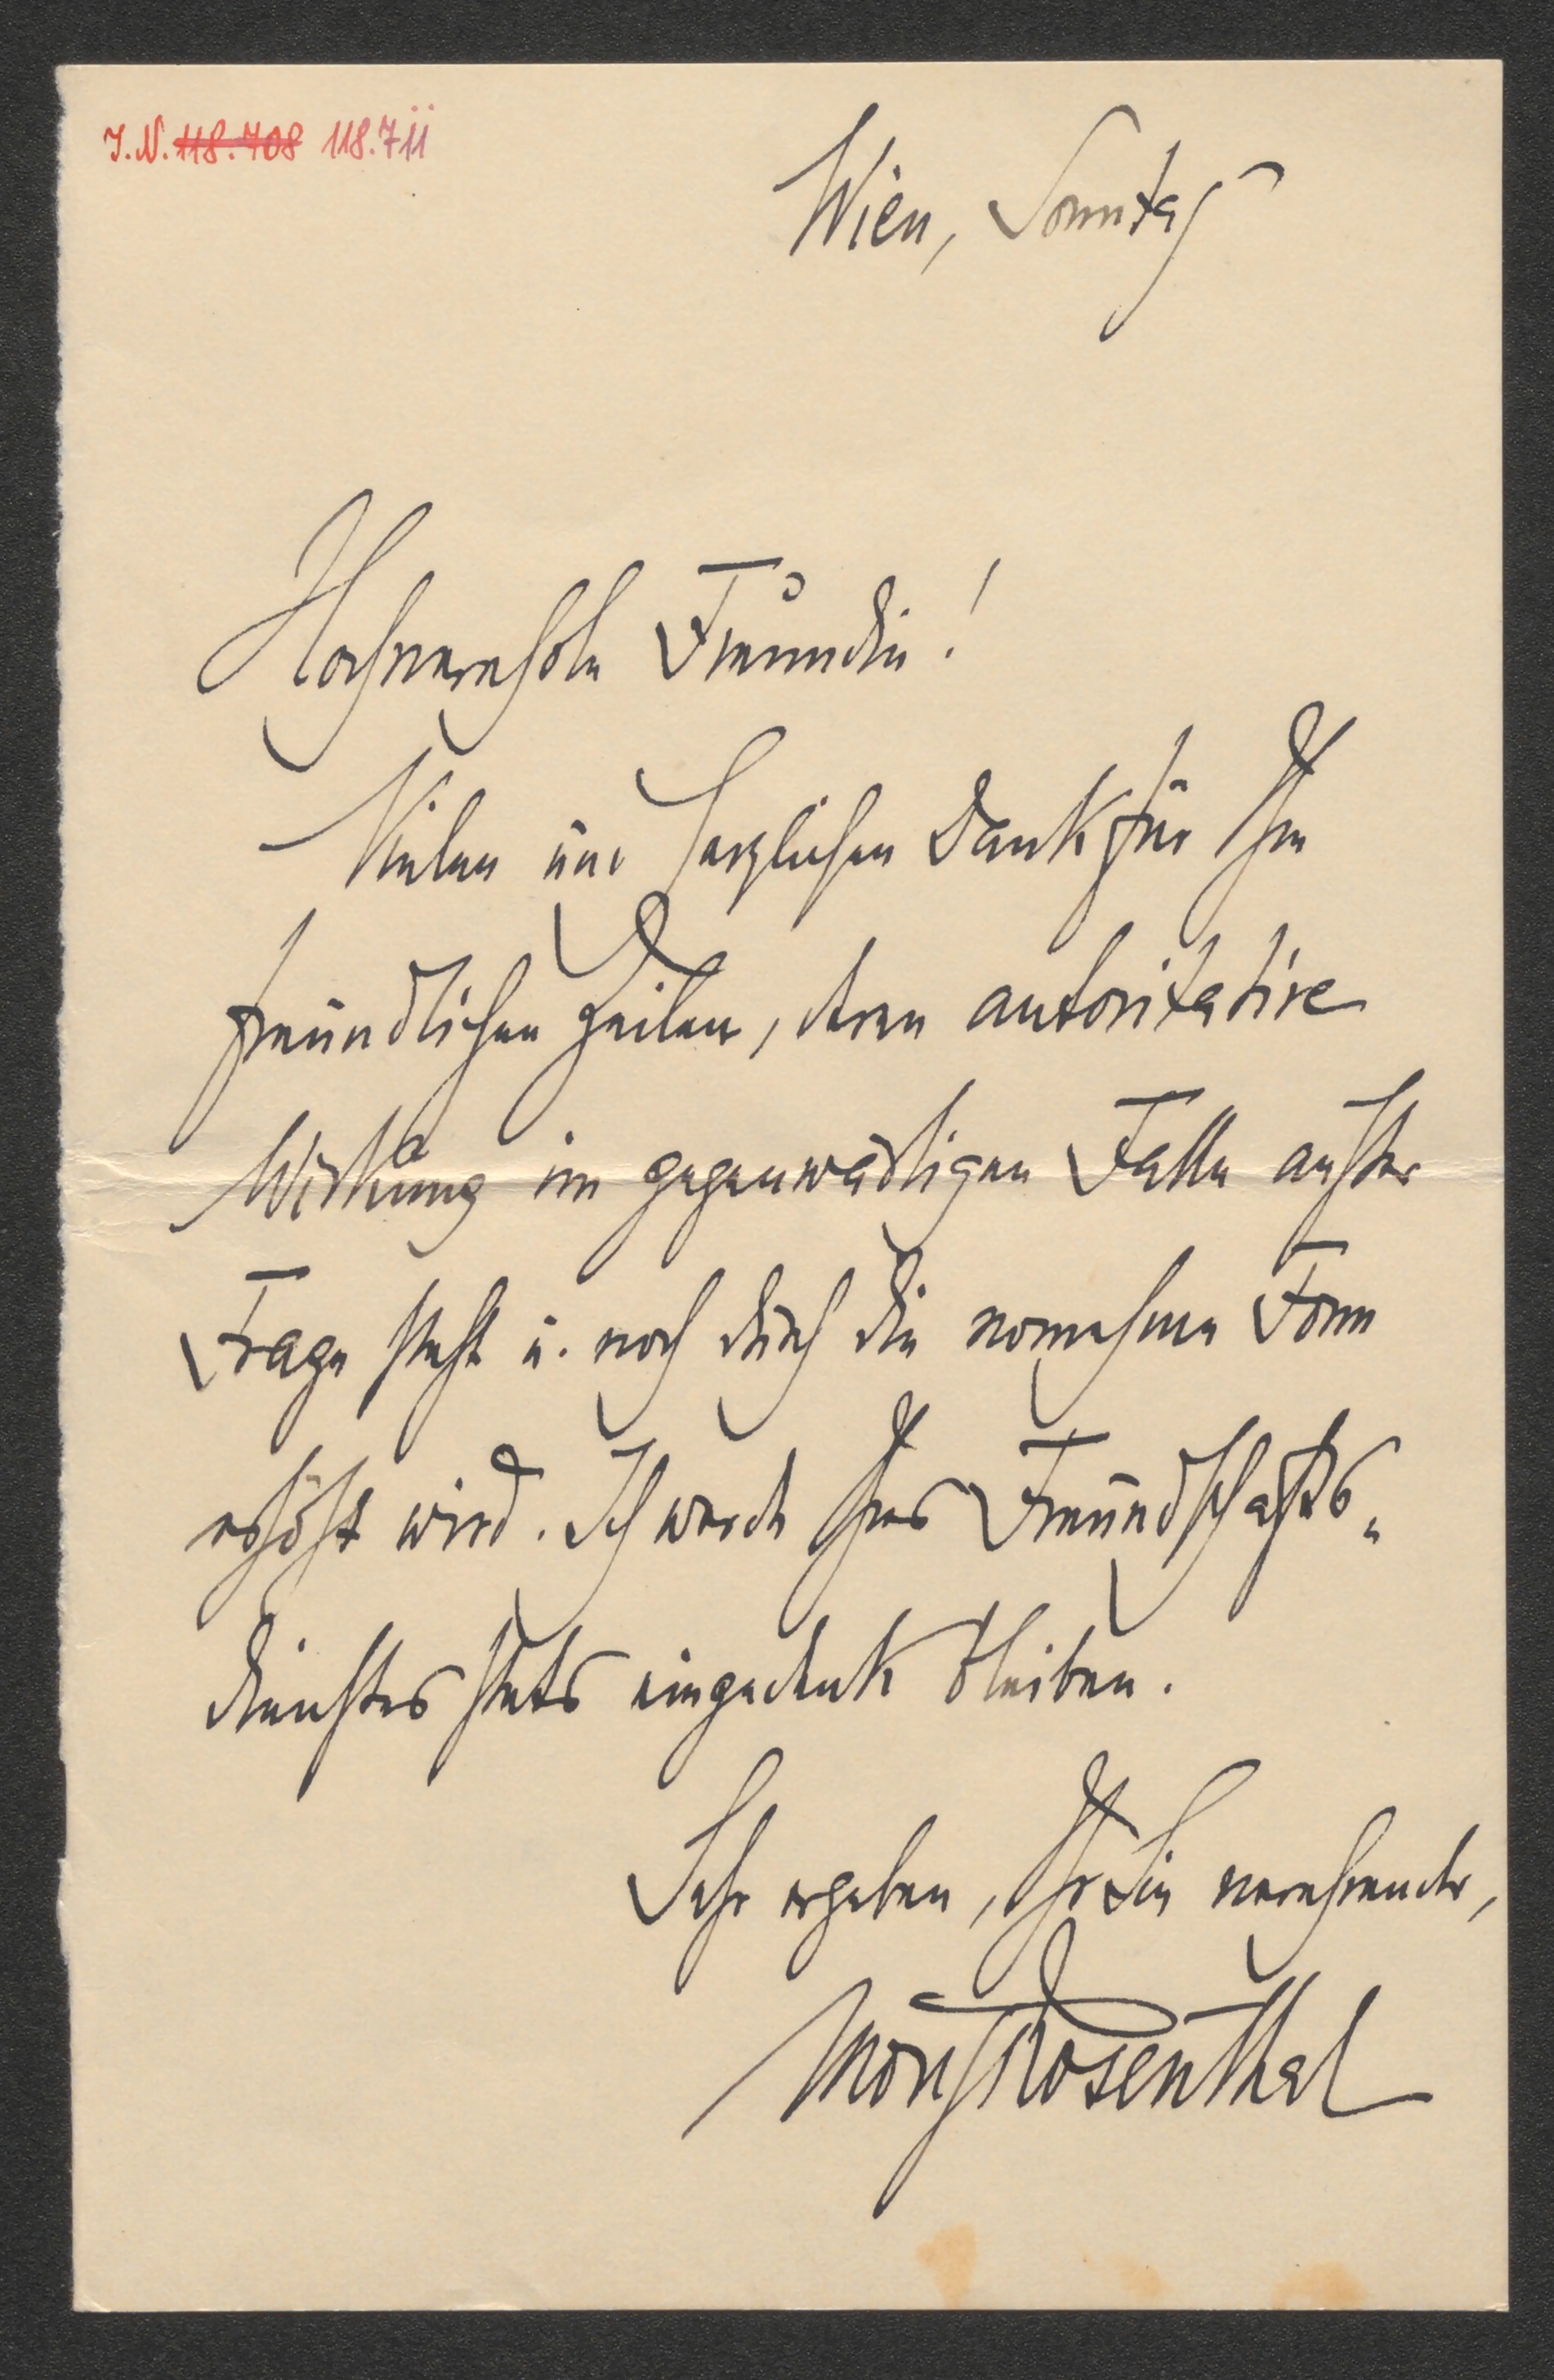 J.N. 118.708 118.711
Wien, Sonntag
Hochverehrte Freundin!
Vielen und herzlichen Dank für Ihre
freundlichen Zeilen, deren autoritative
Wirkung im gegenwärtigen Falle außer
Frage steht u. noch durch die vornehme Form
erhöht wird. Ich werde Ihres Freundschafts-
dienstes stets eingedenk bleiben.
Sehr ergeben, Ihr Sie verehrender,
Moriz Rosenthal